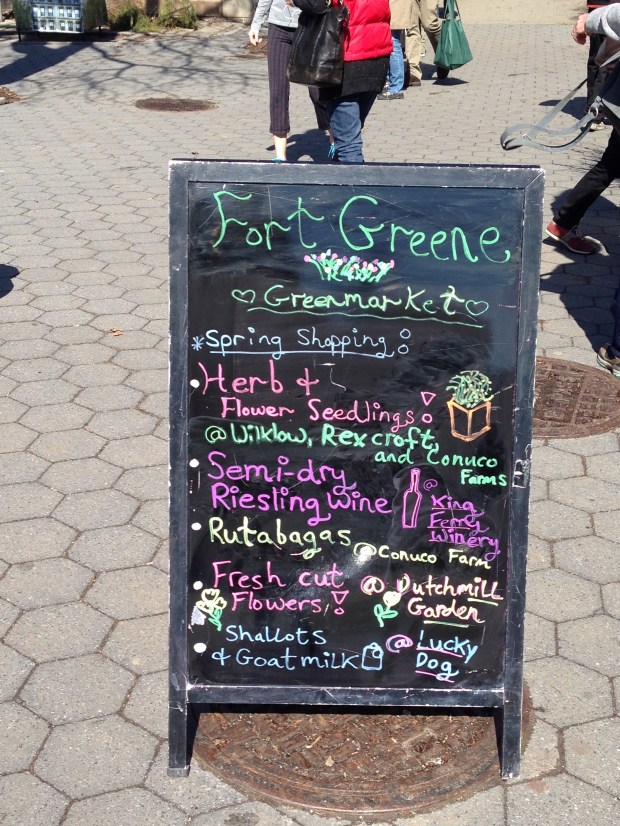 Fort Greene
♡ Greenmarket ♡
*Spring Shopping:
• Herb &
Flower Seedlings!
@ Wilklow, Rexcroft,
and Conuco
Farms
• Semi-dry
Riesling Wine
@
King
Ferry
Winery
• Rutabagas
@ Conuco Farm
• Fresh cut
Flowers!
@ Dutchmill
Garden
• Shallots
& Goatmilk
@ Lucky
Dog